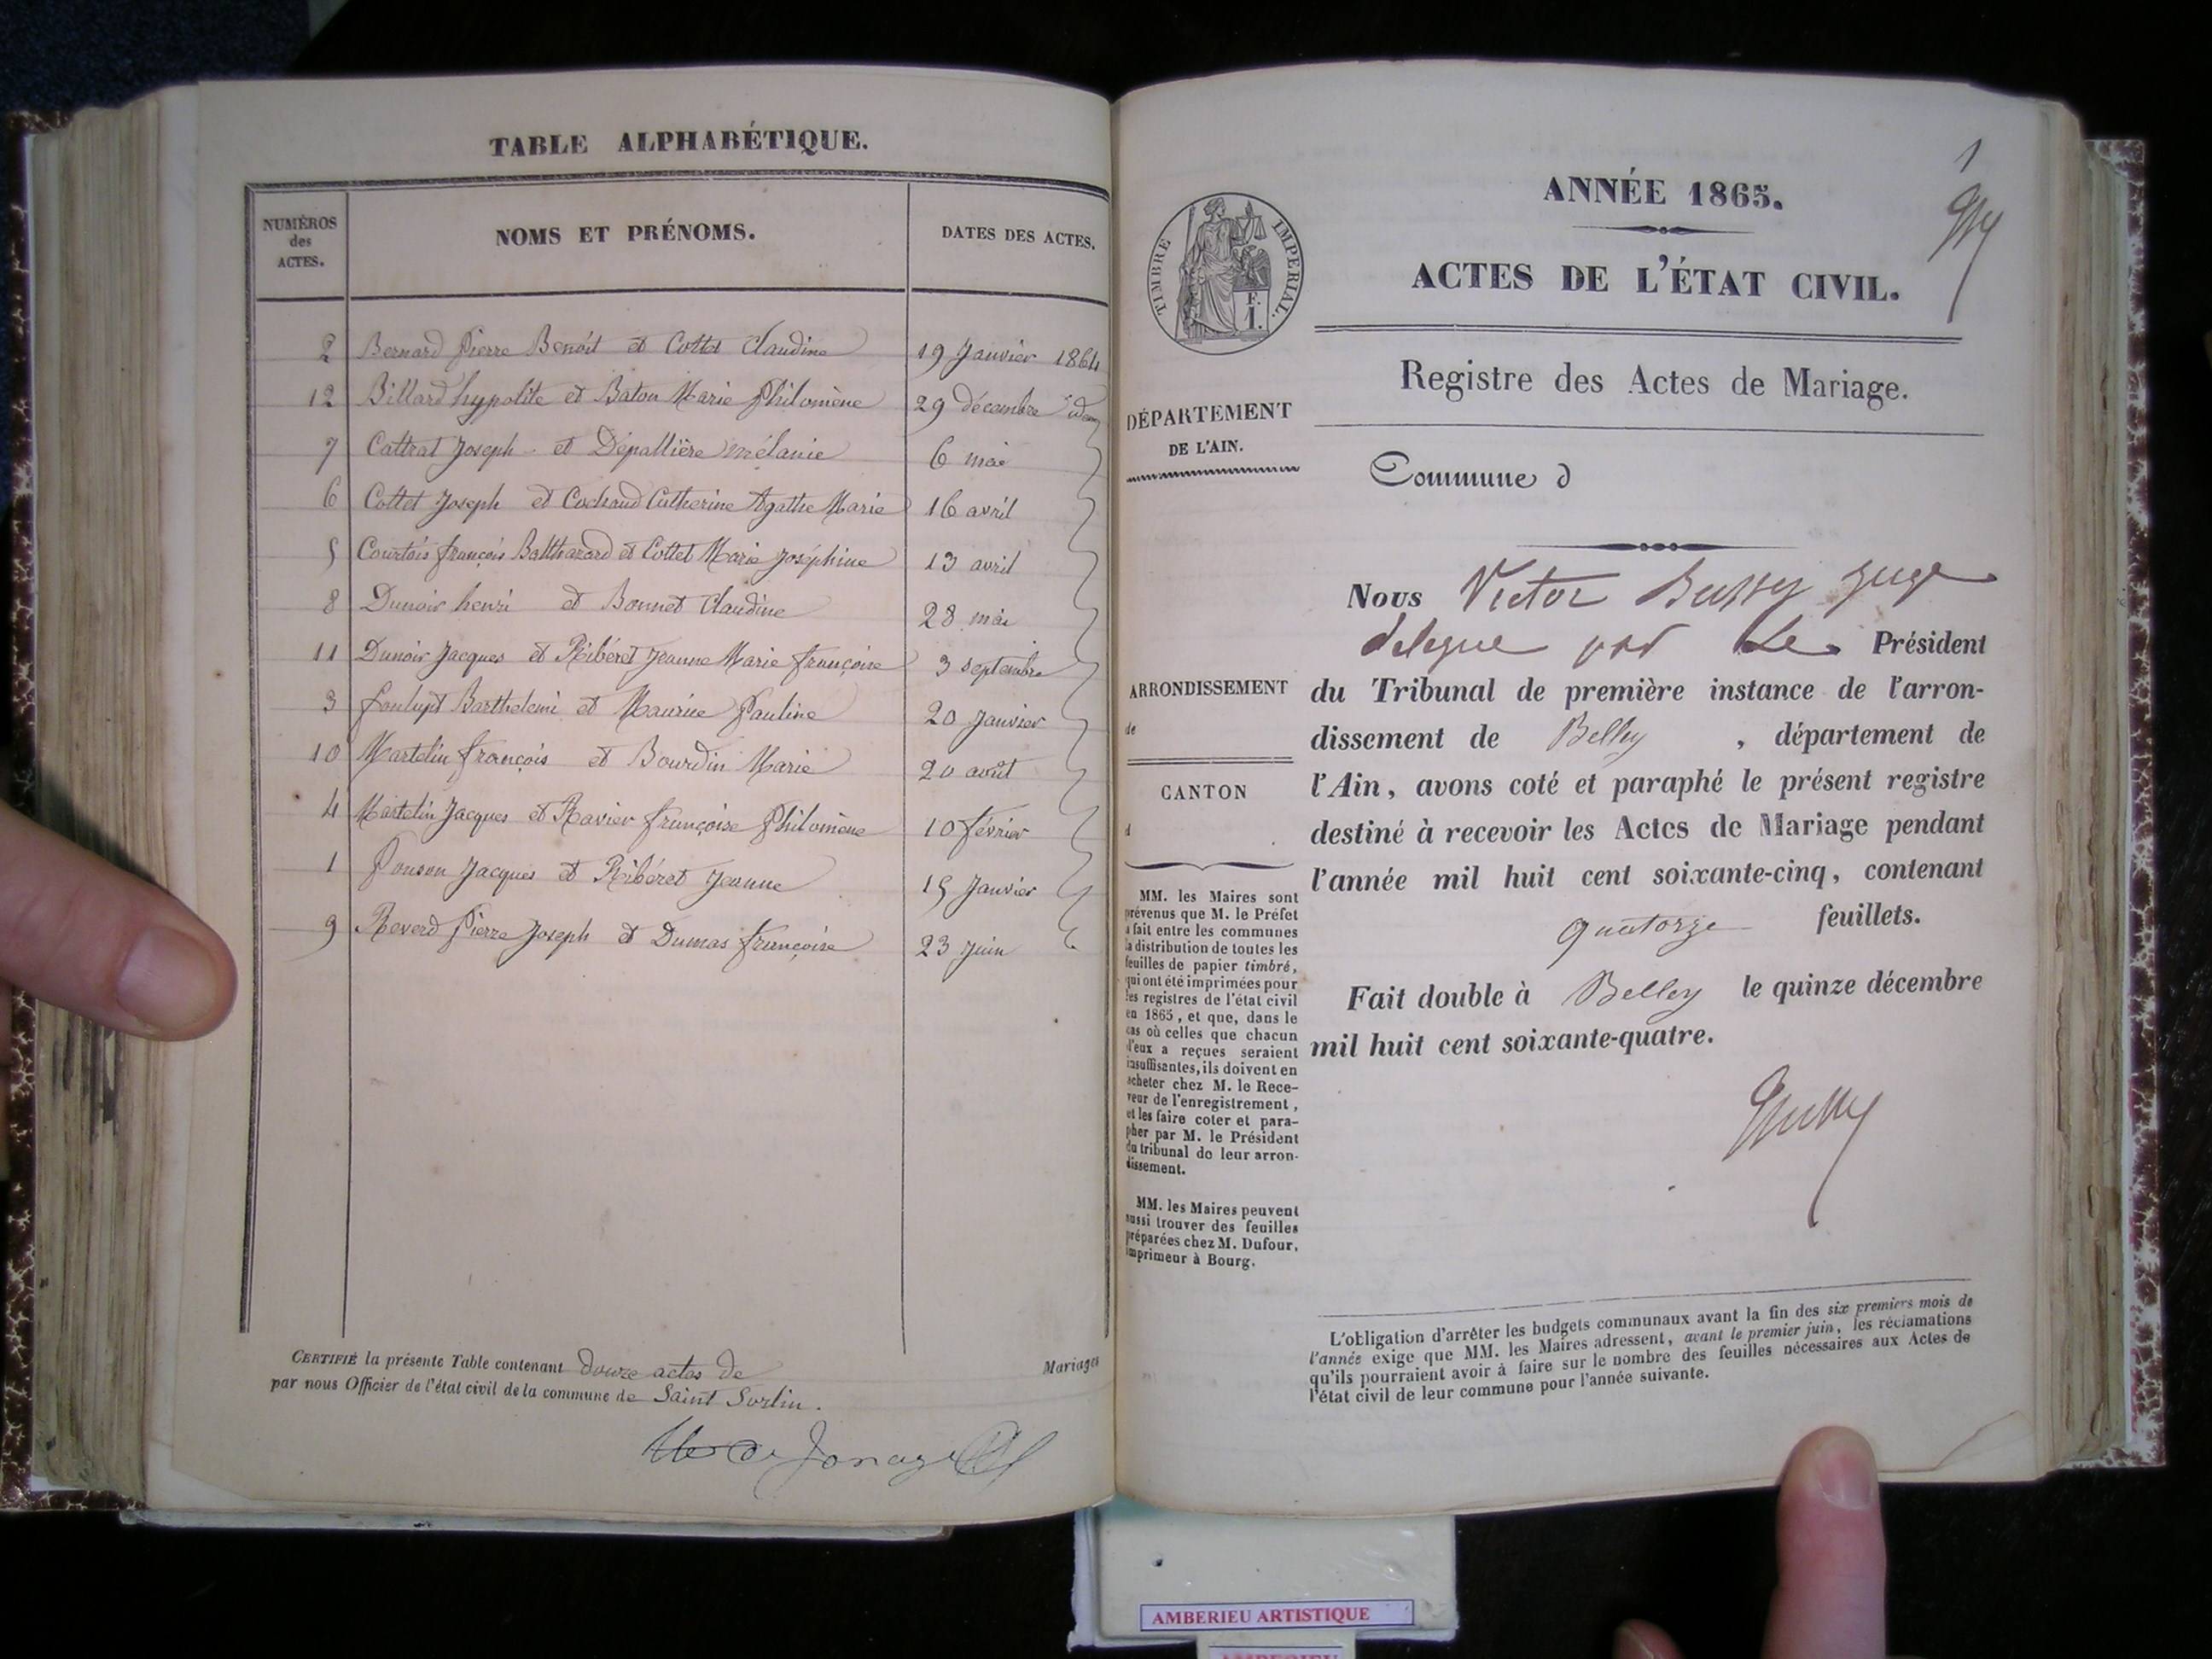 TABLE ALPHABÉTIQUE.
NUMÉROS
des
ACTES.
NOMS ET PRÉNOMS.
DATES DES ACTES.
2 Bernard Pierre Benoît et Cottet Claudine 19 Janvier 1864
12 Billard hypolite et Baton Marie Philomène 29 décembre idem
7 Cattrat Joseph et Dépallière mélanie 6 mai
6 Cottet Joseph et Cochaud Catherine Agathe Marie 16 avril
5 Courtois françois Balthazard et Cottet Marie Joséphine 13 avril
8 Dunoir henri et Bonnet Claudine 28 mai
11 Dunoir Jacques et Ribéret Jeanne Marie françoise 3 septembre
3 foulupt Barthelemi et Maurine Pauline 20 Janvier
10 Martelin françois et Bourdin Marie 20 août
4 Martelin Jacques et Ravier françoise Philomène 10 février
1 Ponson Jacques et Ribéret Jeanne 15 Janvier
9 Reverd Pierre Joseph et Dumas françoise 23 Juin
CERTIFIÉ la présente Table contenant douze actes de Mariages
par nous Officier de l'état civil de la commune de Saint Sorlin.
1
ANNÉE 1865.
ACTES DE L'ÉTAT CIVIL.
TIMBRE IMPÉRIAL.
F.
1.
Registre des Actes de Mariage.
DÉPARTEMENT
DE L'AIN.
Commune d
ARRONDISSEMENT
de
CANTON
d
MM. les Maires sont
prévenus que M. le Préfet
a fait entre les communes
la distribution de toutes les
feuilles de papier timbré,
qui ont été imprimées pour
les registres de l'état civil
en 1865, et que, dans le
cas où celles que chacun
d'eux a reçues seraient
insuffisantes, ils doivent en
acheter chez M. le Rece-
veur de l'enregistrement,
et les faire coter et para-
pher par M. le Président
du tribunal de leur arron-
dissement.
MM. les Maires peuvent
aussi trouver des feuilles
préparées chez M. Dufour,
imprimeur à Bourg.
Nous Victor Bussy juge
delegue par Le Président
du Tribunal de première instance de l'arron-
dissement de Belley, département de
l'Ain, avons coté et paraphé le présent registre
destiné à recevoir les Actes de Mariage pendant
l'année mil huit cent soixante-cinq, contenant
quatorze feuillets.
Fait double à Belley le quinze décembre
mil huit cent soixante-quatre.
L'obligation d'arrêter les budgets communaux avant la fin des six premiers mois de
l'année exige que MM. les Maires adressent, avant le premier juin, les réclamations
qu'ils pourraient avoir à faire sur le nombre des feuilles nécessaires aux Actes de
l'état civil de leur commune pour l'année suivante.
AMBERIEU ARTISTIQUE
AMBERIEU